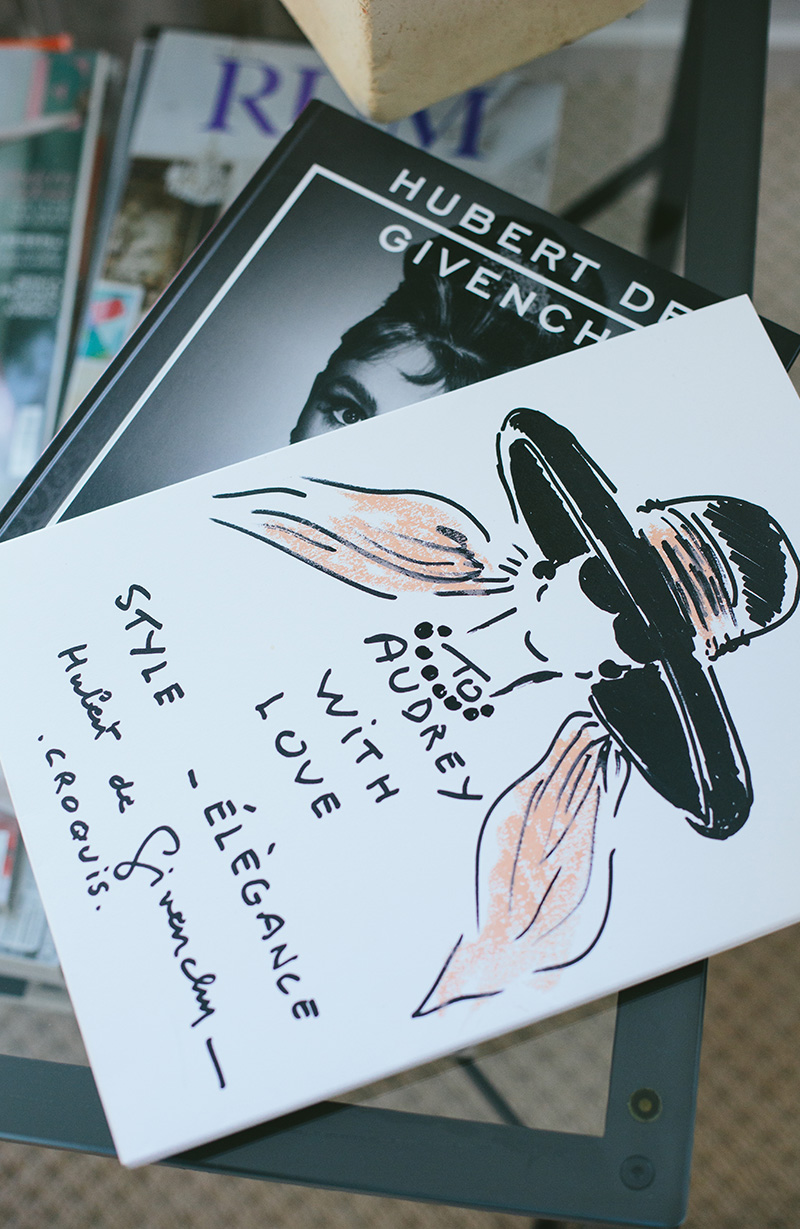 HUBERT DE
GIVENCH
TO
AUDREY
WITH
LOVE
STYLE - ÉLÉGANCE
Hubert de Givenchy
.CROQUIS.